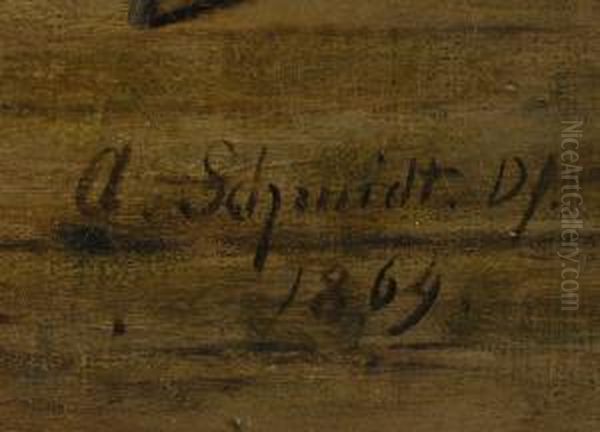 A. Schmidt. Df.
1869.
NiceArtGallery.com